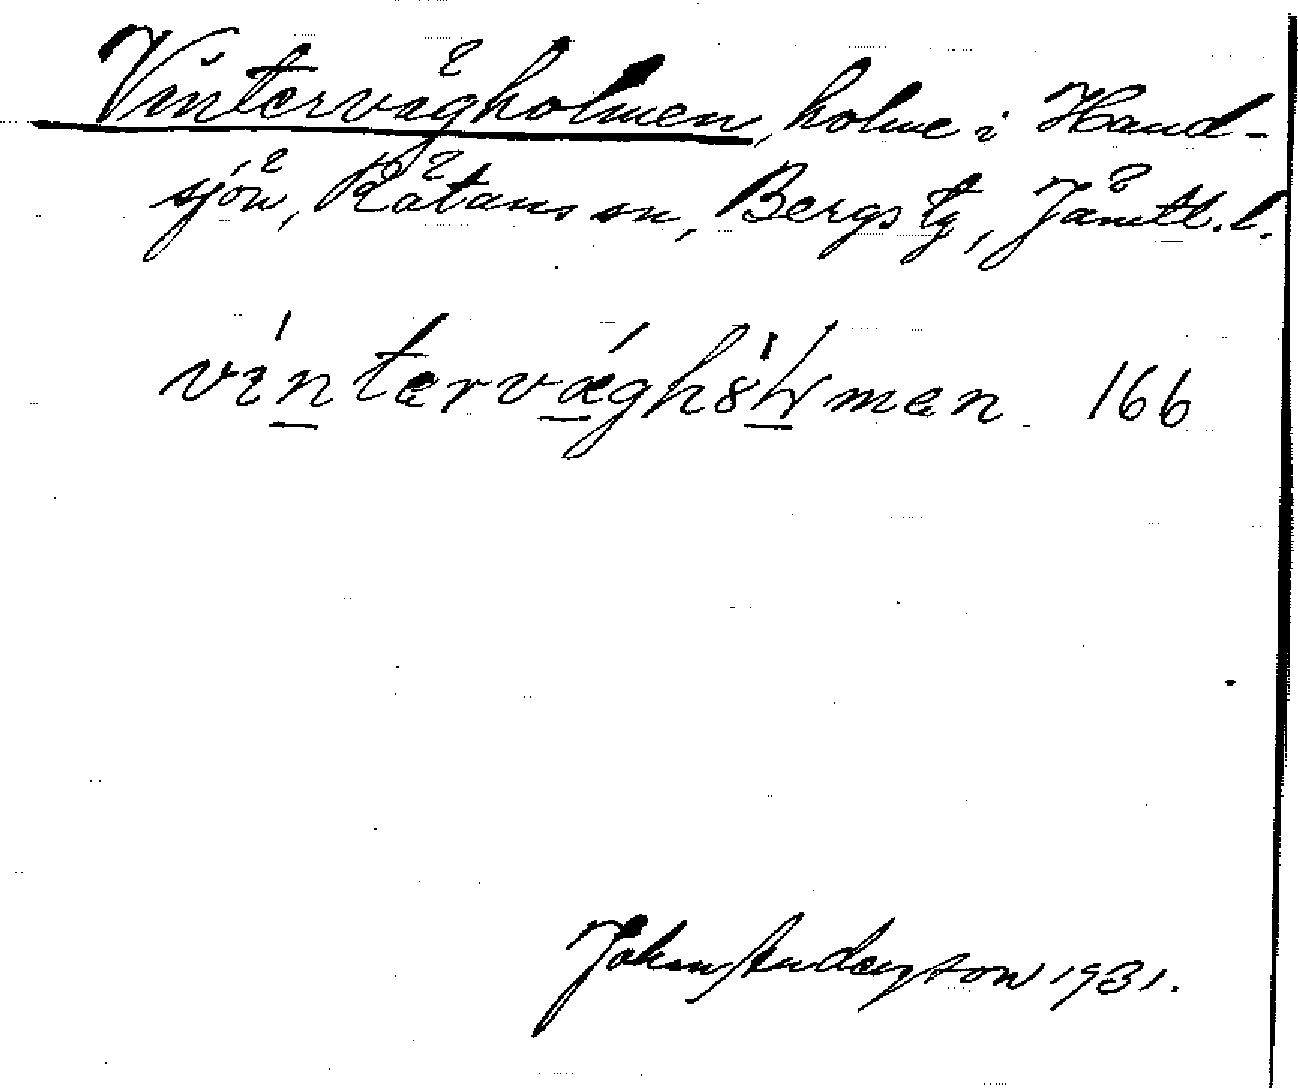 Vintervågholmen, holme i Hand-
sjön, Rätans sn, Bergs tg, Jämtl. l.
vintervæghólmen 166
John Anderson 1931.